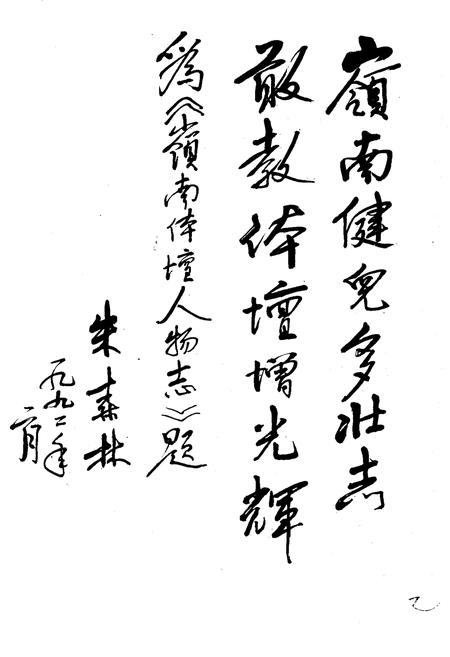 嶺南健兒多壯志
敢教体壇增光輝
為《嶺南体壇人物志》題
朱森林
一九九二年
二月